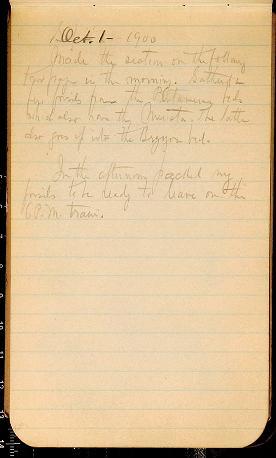 Oct. 1 - 1900
Made the section on the following
two pages in the morning. Gathered a
few fossils from the beds
and also from the The latter
also goes up into the Bryozoa bed.
In the afternoon packed my
fossils to be ready to leave on the
6 P.M. train.